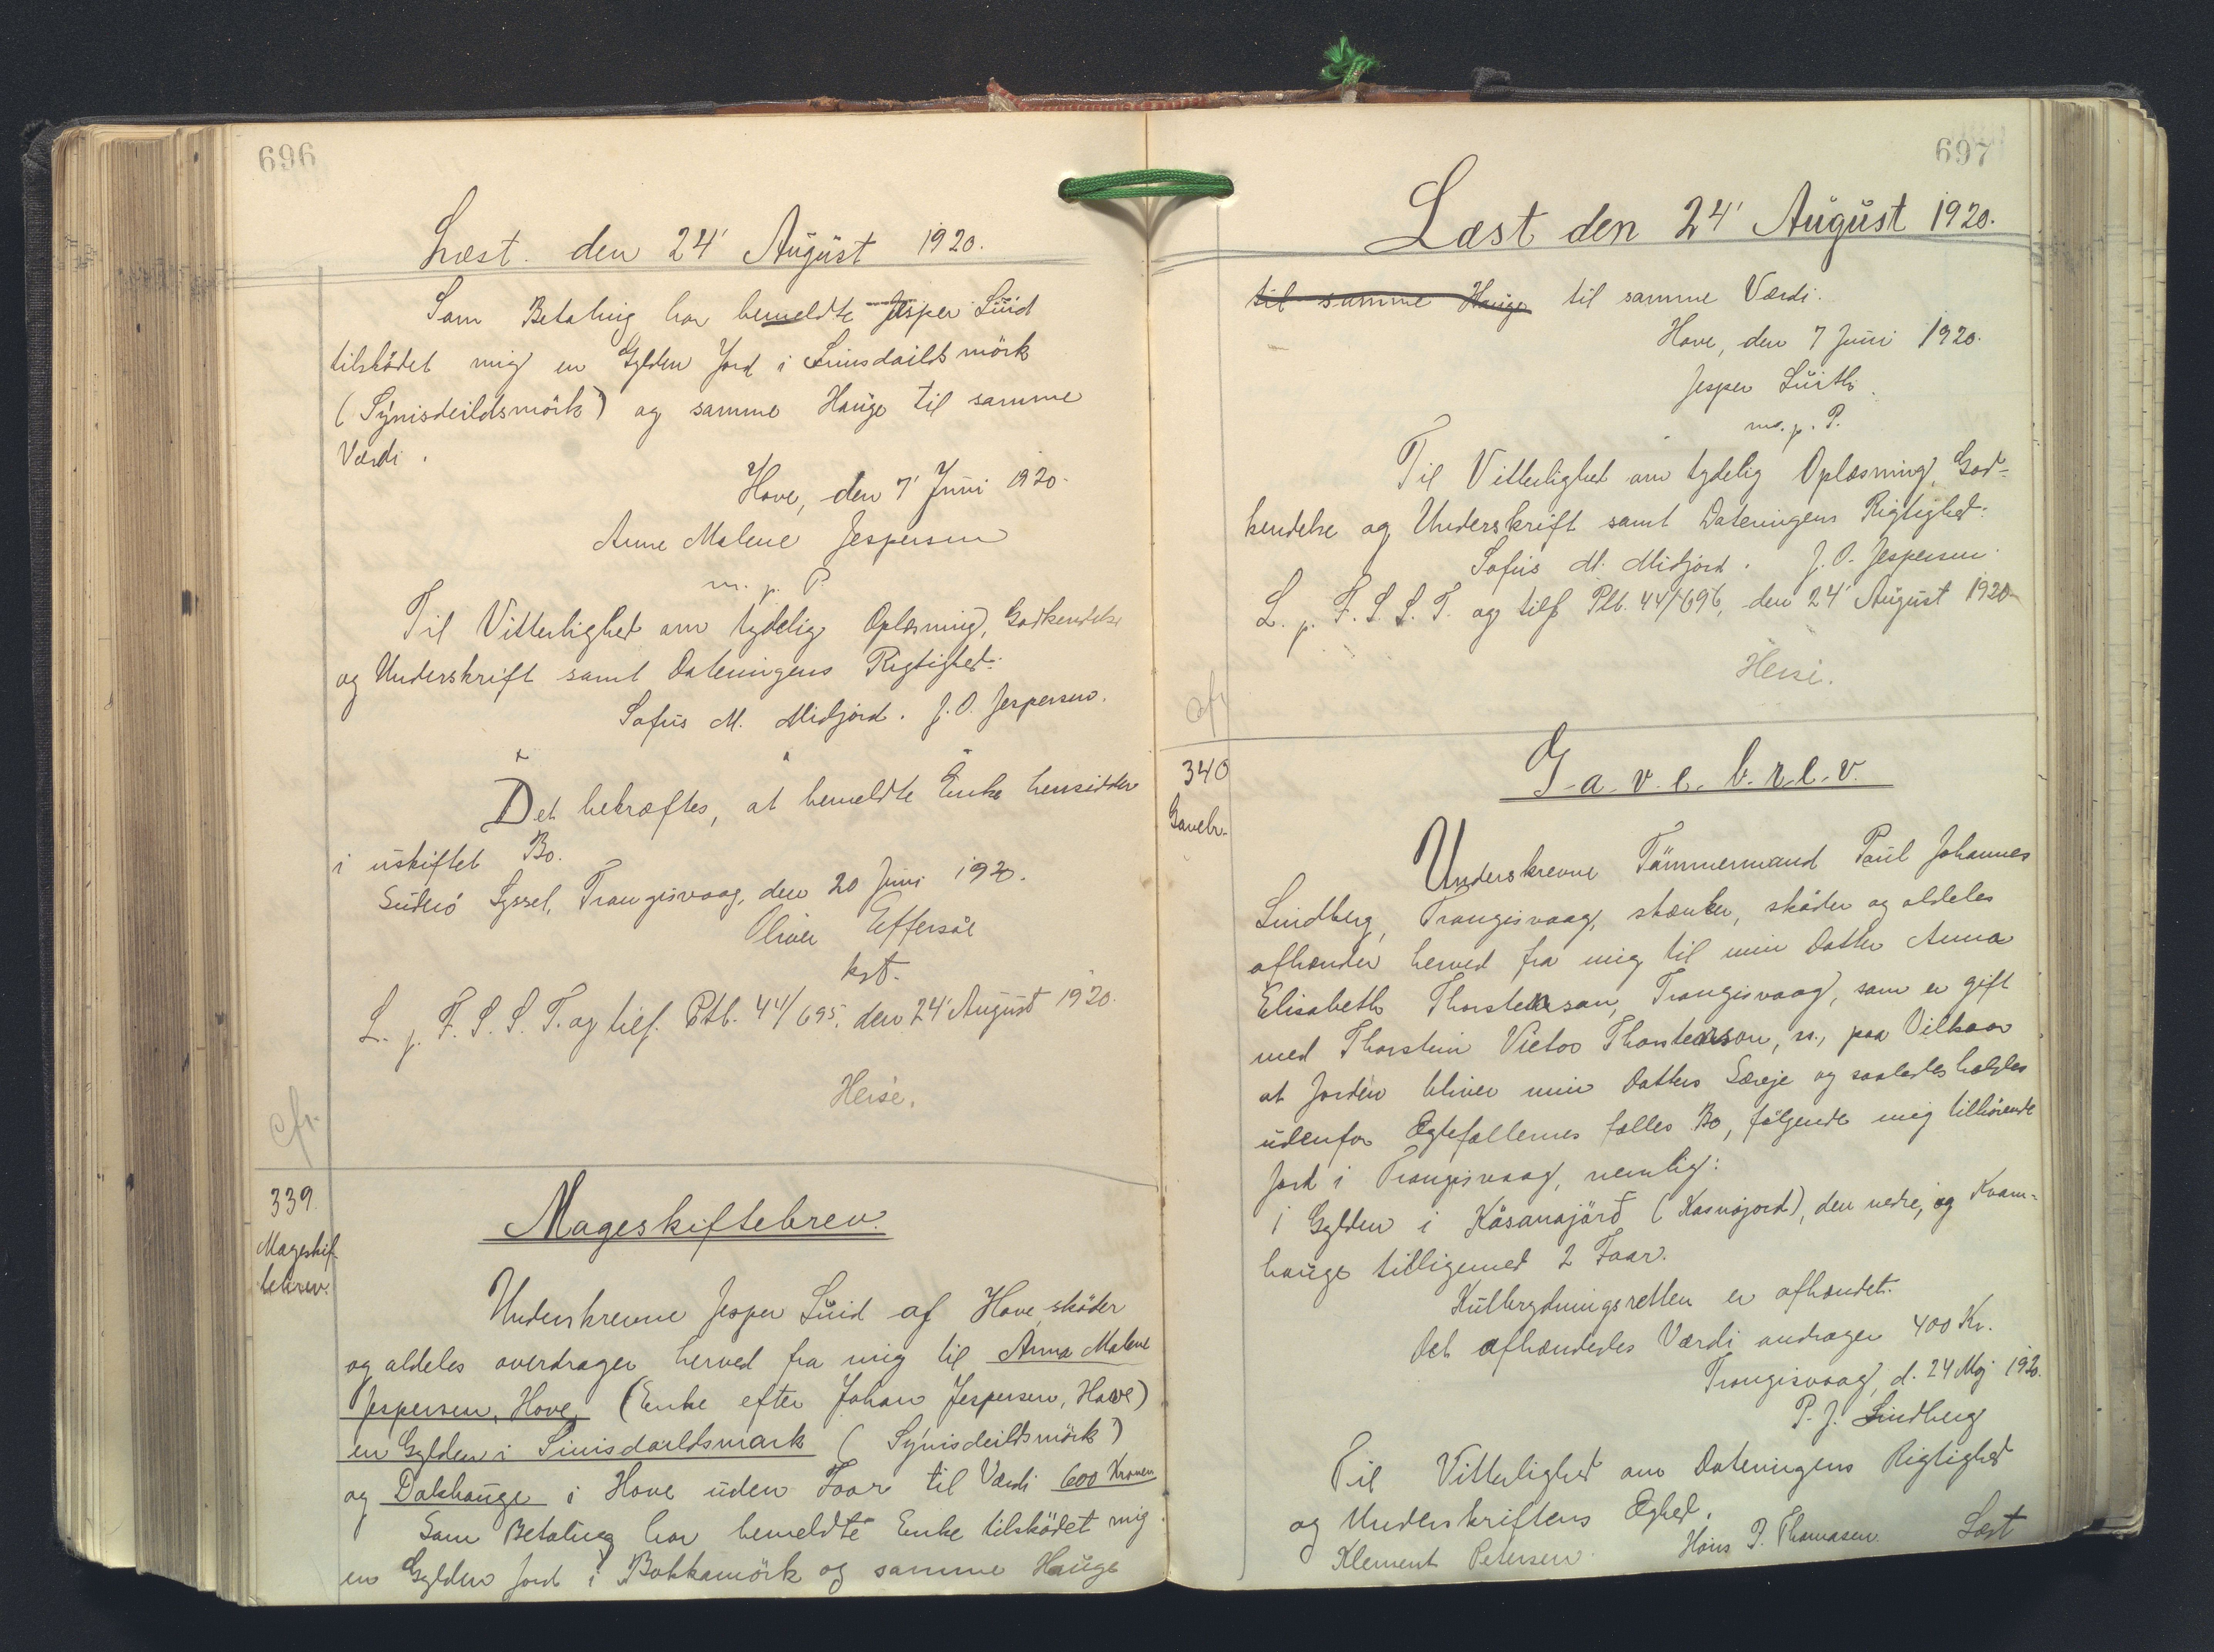 696
Læst. den 24' August 1920.
Som Betaling har bemeldte Jesper Luid
tilsködet mig en Gylden Jord i Sinisdailds mörk
(Sýnisdeildsmörk) og samme Hauge til samme
Værdi.
Hove, den 7' Juni 1920.
Anne Malene Jespersen
m. p. P.
Til Vitterlighed om tydelig Oplæsning, Godkendelse
og Underskrift samt Dateringens Rigtighed:
Sofus M. Midjord. J. O. Jespersen.
Det bekræftes, at bemeldte Enke hensidder
i uskiftet Bo.
Suderö Syssel, Trangisvaag, den 20 Juni 1920.
Oliver Effersöe
kst.
L. p. F. S. S. T. og tilf. Ptb. 44/695, den 24' August 1920.
Heise.
cfr.
339.
Mageskif-
tebrev.
Mageskiftebrev.
Underskrevne Jesper Luid af Hove, sköder
og aldeles overdrager herved fra mig til Anna Malene
Jespersen, Hove, (Enke efter Johan Jespersen, Hove)
en Gylden i Sinisdaildsmark (Sýnisdeildsmörk)
og Dalshauge i Hove uden Faar til Værdi 600 Kroner
Som Betaling har bemeldte Enke tilsködet mig
en Gylden Jord i Bakkamörk og samme Hauge
697
Læst den 24' August 1920.
til samme Hauge til samme Værdi.
Hove, den 7 Juni 1920.
Jesper Luith
m. p. P.
Til Vitterlighed om tydelig Oplæsning, God-
kendelse og Underskrift samt Dateringens Rigtighed:
Sofus M. Midjord. J. O. Jespersen.
L. p. F. S. S. T. og tilf. Ptb. 44/696, den 24' August 1920
Heise.
cfr
340
Gavebr.
Gavebrev.
Underskrevne Tömmermand Poul Johannes
Lindberg, Trangisvaag, skænker, sköder og aldeles
afhænder herved fra mig til min Datter Anna
Elisabeth Thorstensson, Trangisvaag, som er gift
med Thorstein Victor Thorstensson, s., paa Vilkaar
at Jorden bliver min Datters Særeje og saaledes holdes
udenfor Ægtefællernes fælles Bo, følgende mig tilhörende
Jord i Trangisvaag, nemlig:
1 Gylden i Kåsanajörð (Kasnajord), den nedre, og Kvam-
hauge tilligemed 2 Faar.
Kulbrydningsretten er afhændet.
Det afhændedes Værdi andrager 400 Kr.
Trangisvaag, d. 24 Maj 1920.
P. J. Lindberg
Til Vitterlighed om Dateringens Rigtighed
og Underskriftens Ægthed.
Klement Petersen. Hans P. Thomasen. Læst